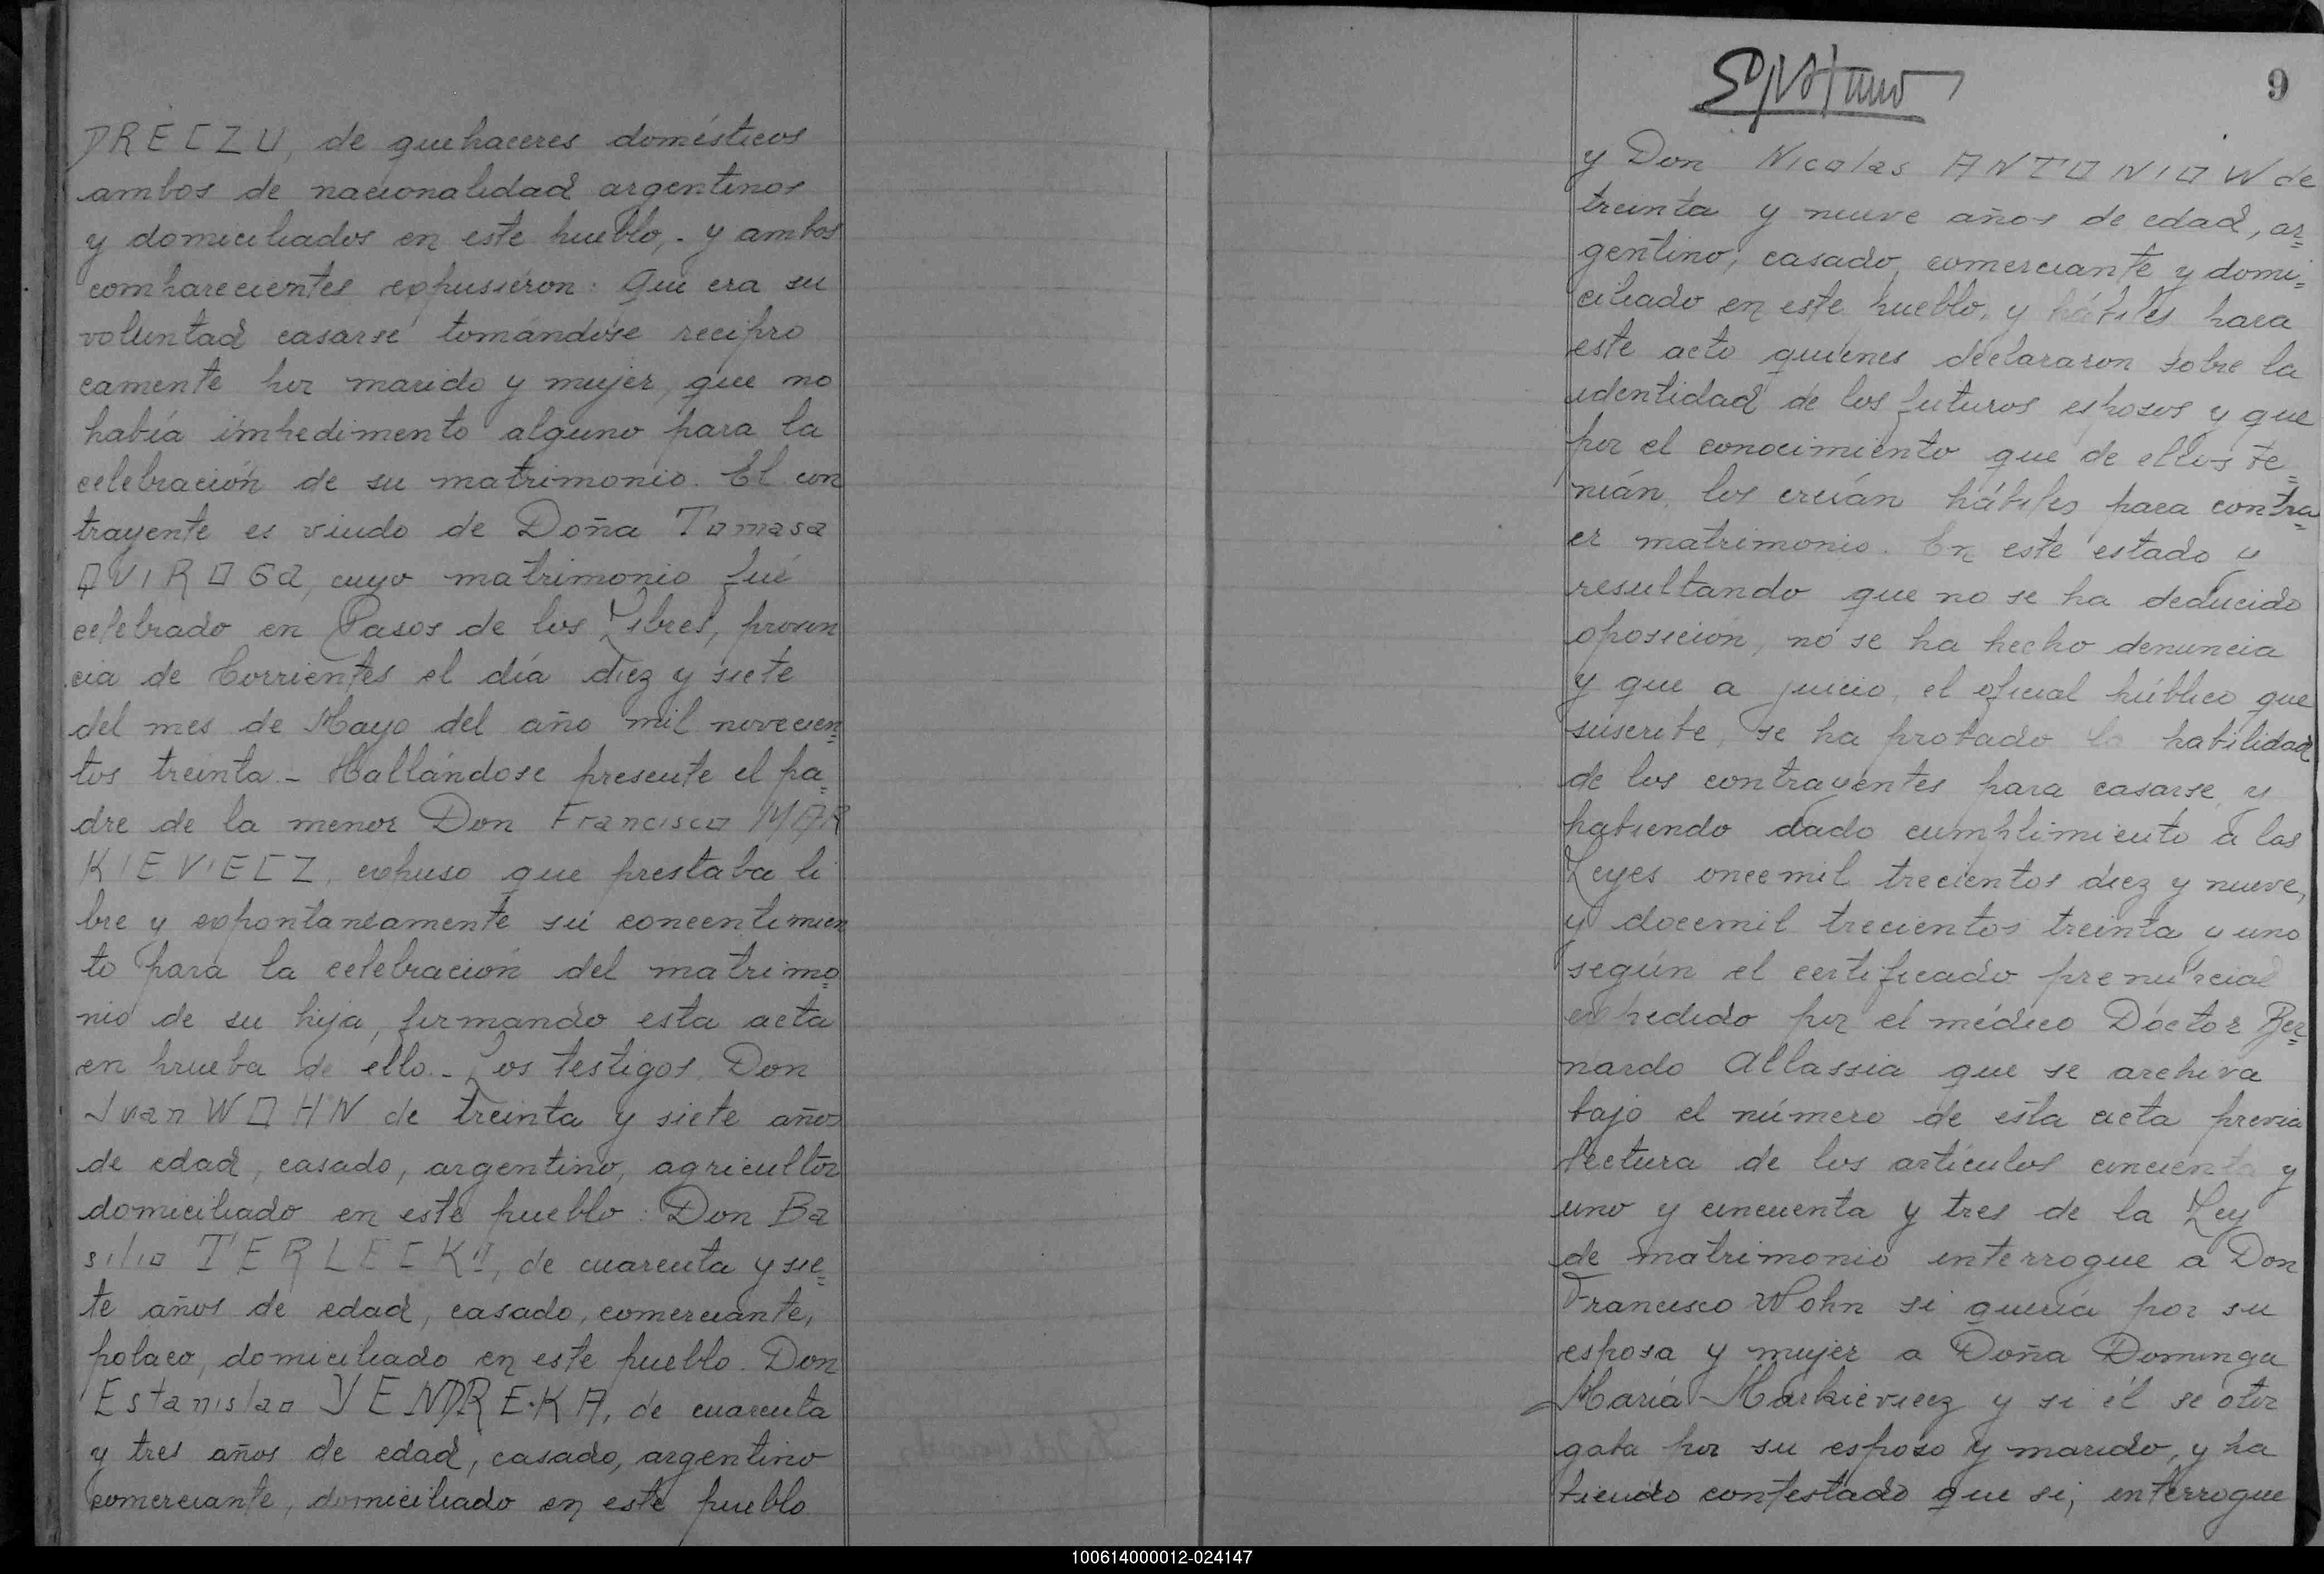 DRECZU, de quehaceres domésticos
ambos de nacionalidad argentinos
y domiciliados en este pueblo,. y ambos
comparecientes expusieron: Que era su
voluntad casarse tomándose recipro
camente por marido y mujer, que no
había impedimento alguno para la
celebración de su matrimonio. El con
trayente es viudo de Doña Tomasa
QVIROGa, cuyo matrimonio fué
celebrado en Pasos de los Libres, provin
cia de Corrientes el día diez y siete
del mes de Mayo del año mil novecien=
tos treinta.- Hallándose presente el pa=
dre de la menor Don Francisco MAR
KIEVIECZ, expuso que prestaba li
bre y expontaneamente su concentimien
to para la celebración del matrimo=
nio de su hija, firmando esta acta
en prueba de ello.- Los testigos. Don
Juan WOHN de treinta y siete años
de edad, casado, argentino, agricultor
domiciliado en este pueblo: Don Ba
silio TERLECKI, de cuarenta y sie=
te años de edad, casado, comerciante,
polaco, domiciliado en este pueblo. Don
Estanislao YENDREKA, de cuarenta
y tres años de edad, casado, argentino
comerciante, domiciliado en este pueblo
9
y Don Nicolas ANTONIOW de
treinta y nueve años de edad, ar=
gentino, casado, comerciante y domi=
ciliado en este pueblo, y hábiles para
este acto quienes declararon sobre la
identidad de los futuros esposos y que
por el conocimiento que de ellos te=
nián, los creián hábiles para contra=
er matrimonio. En este estado y
resultando que no se ha deducido
oposición, no se ha hecho denuncia
y que a juicio, el oficial público que
suscribe, se ha probado la habilidad
de los contrayentes para casarse, y
habiendo dado cumplimiento a las
Leyes oncemil trecientos diez y nueve,
y docemil trecientos treinta y uno
según el certificado prenupcial
expedido por el médico Doctor Ber=
nardo Allassia que se archiva
bajo el número de esta acta previa
lectura de los artículos cincuenta y
uno y cincuenta y tres de la Ley
de matrimonio interrogue a Don
Francisco Wohn si quería por su
esposa y mujer a Doña Dominga
María Markieviecz y si él se otor
gaba por su esposo y marido, y ha
biendo contestado que si, interrogue
100614000012-024147